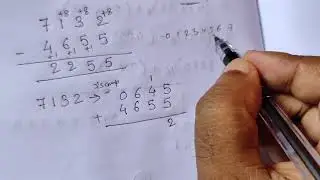 +8 +8 +8
7 1 3 2
- 4 6 5 5
+1 +1
2 2 5 5
0 1 2 3 4 5 6 7
7 1 3 2 → 0 6 4 5
1
+ 4 6 5 5
2